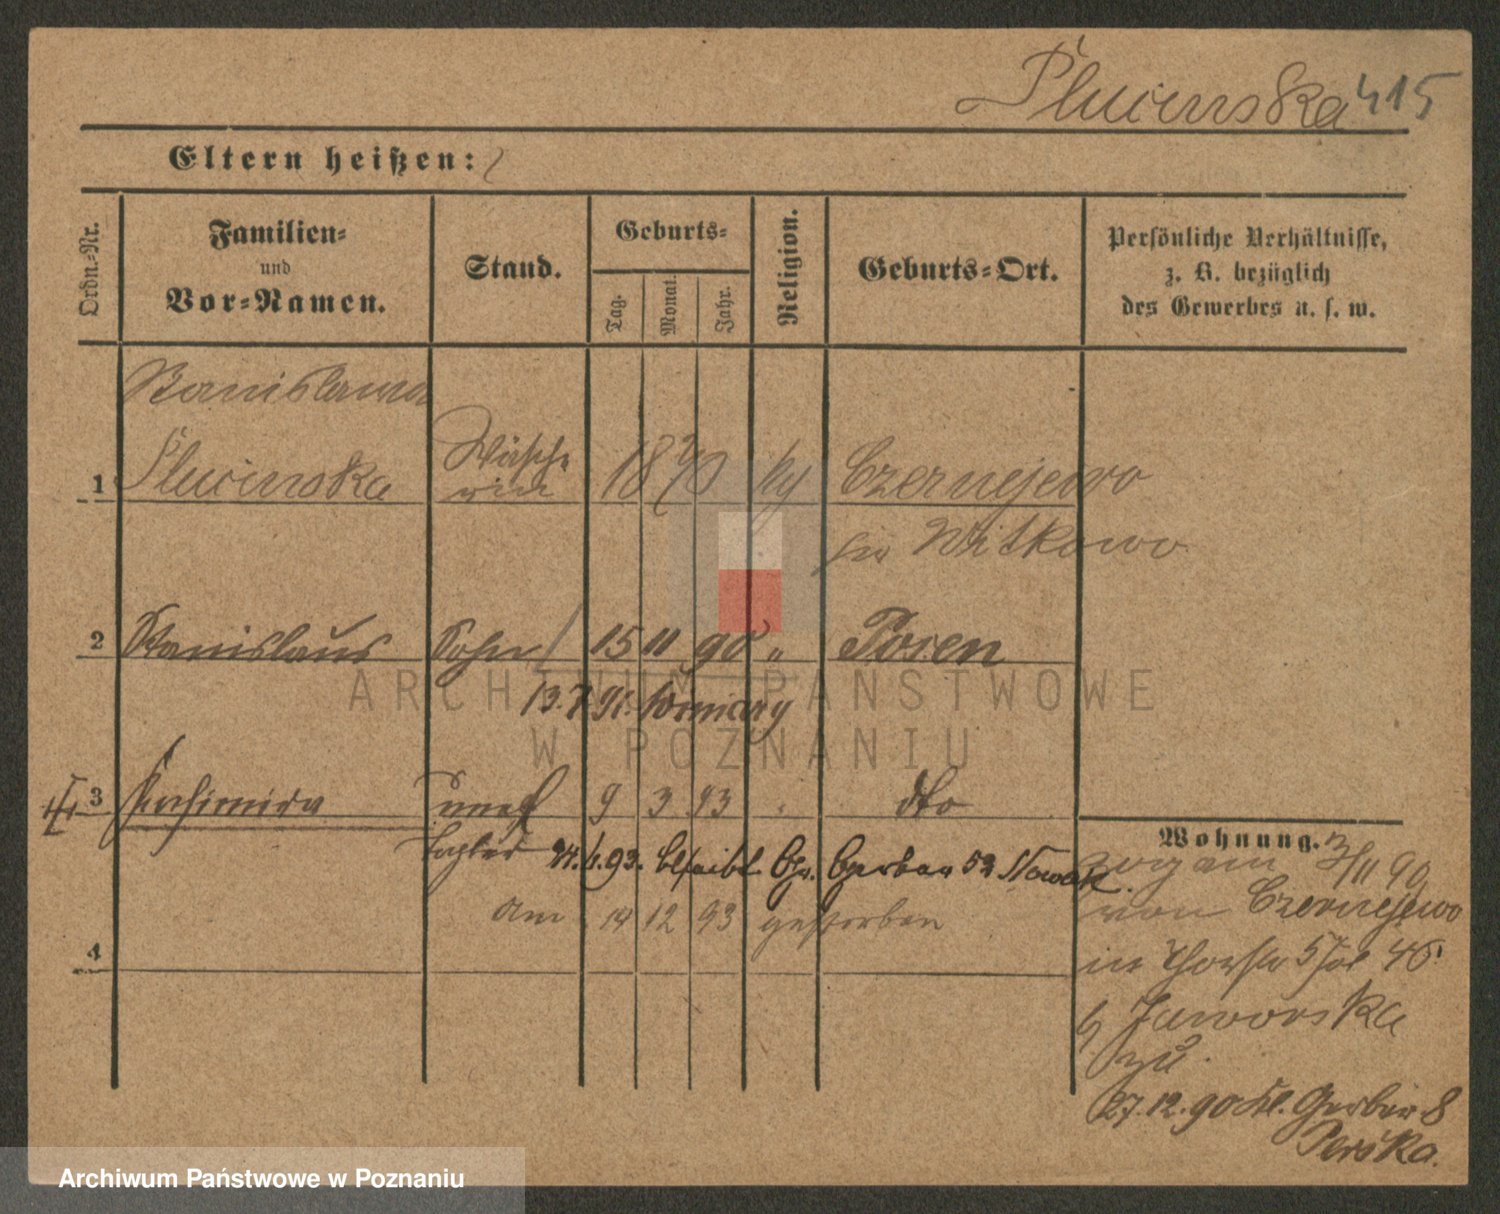 Plucinska 415
Eltern heißen:
Ordn.-Nr.
Familien-
und
Vor-Namen.
Stand.
Geburts-
Tag.
Monat.
Jahr.
Religion.
Geburts-Ort.
Persönliche Verhältnisse,
z. B. bezüglich
des Gewerbes u. s. w.
Stanislawa
1 Plucinska Wäsche-
rin 1870 ky Czernejewo
Witkowo
2 Stanislaus Sohn 15 11 90 " Posen
13.7.91. Winiary
3 Kasimira unehl 9 3 93 dto
Tochter 24. 93. bleibt Gr. Gerber 52 Nowak.
Am 14 12 93 gestorben
4
Wohnung.
zog am 3/11 90
von Czernejewo
in 46.
b Jaworska
zu.
27.12.90 Kl. Gerber 8
Perska.
ARCHIWUM PAŃSTWOWE
W POZNANIU
Archiwum Państwowe w Poznaniu